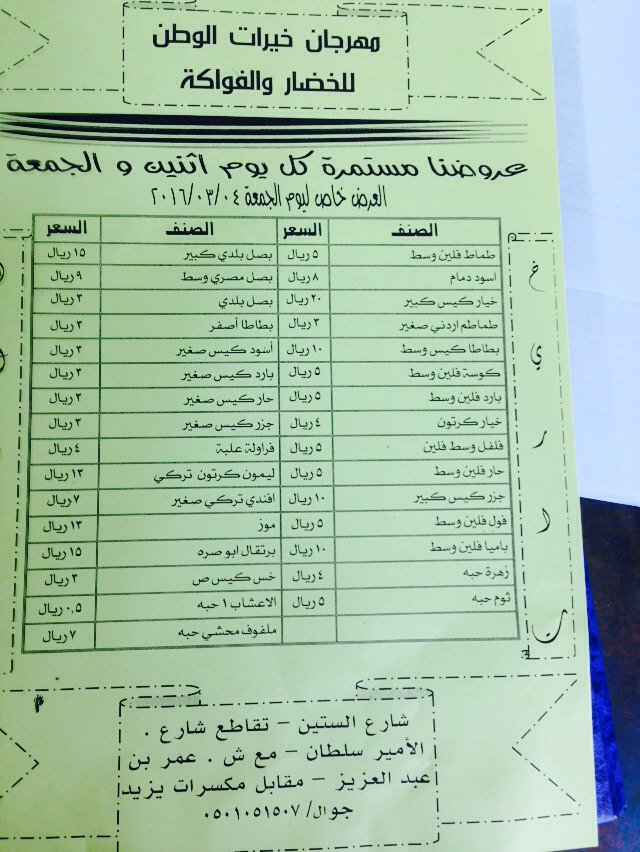 مهرجان خيرات الوطن
للخضار والفواكة
عروضنا مستمرة كل يوم اثنين و الجمعة
العرض خاص ليوم الجمعة ٢٠١٦/٠٣/٠٤
الصنف السعر الصنف السعر
طماط فلين وسط ٥ ريال بصل بلدي كبير ١٥ ريال
اسود دمام ٨ ريال بصل مصري وسط ٩ ريال
خيار كيس كبير ٢٠ ريال بصل بلدي ٢ ريال
طماطم اردني صغير ٣ ريال بطاطا أصفر ٣ ريال
بطاطا كيس وسط ١٠ ريال أسود كيس صغير ٢ ريال
كوسة فلين وسط ٥ ريال بارد كيس صغير ٢ ريال
بارد فلين وسط ٥ ريال حار كيس صغير ٢ ريال
خيار كرتون ٤ ريال جزر كيس صغير ٢ ريال
فلفل وسط فلين ٥ ريال فراولة علبة ٤ ريال
حار فلين وسط ٥ ريال ليمون كرتون تركي ١٣ ريال
جزر كيس كبير ١٠ ريال افندي تركي صغير ٧ ريال
فول فلين وسط ٥ ريال موز ١٣ ريال
باميا فلين وسط ١٠ ريال برتقال ابو صره ١٥ ريال
زهرة حبه ٤ ريال خس كيس ص ٢ ريال
ثوم حبه ٥ ريال الاعشاب ١ حبه ٠,٥ ريال
ملفوف محشي حبه ٧ ريال
خ
ي
ر
ا
ت
شارع الستين – تقاطع شارع .
الأمير سلطان – مع ش . عمر بن
عبد العزيز – مقابل مكسرات يزيد
جوال/ ٠٥٠١٠٥١٥٠٧